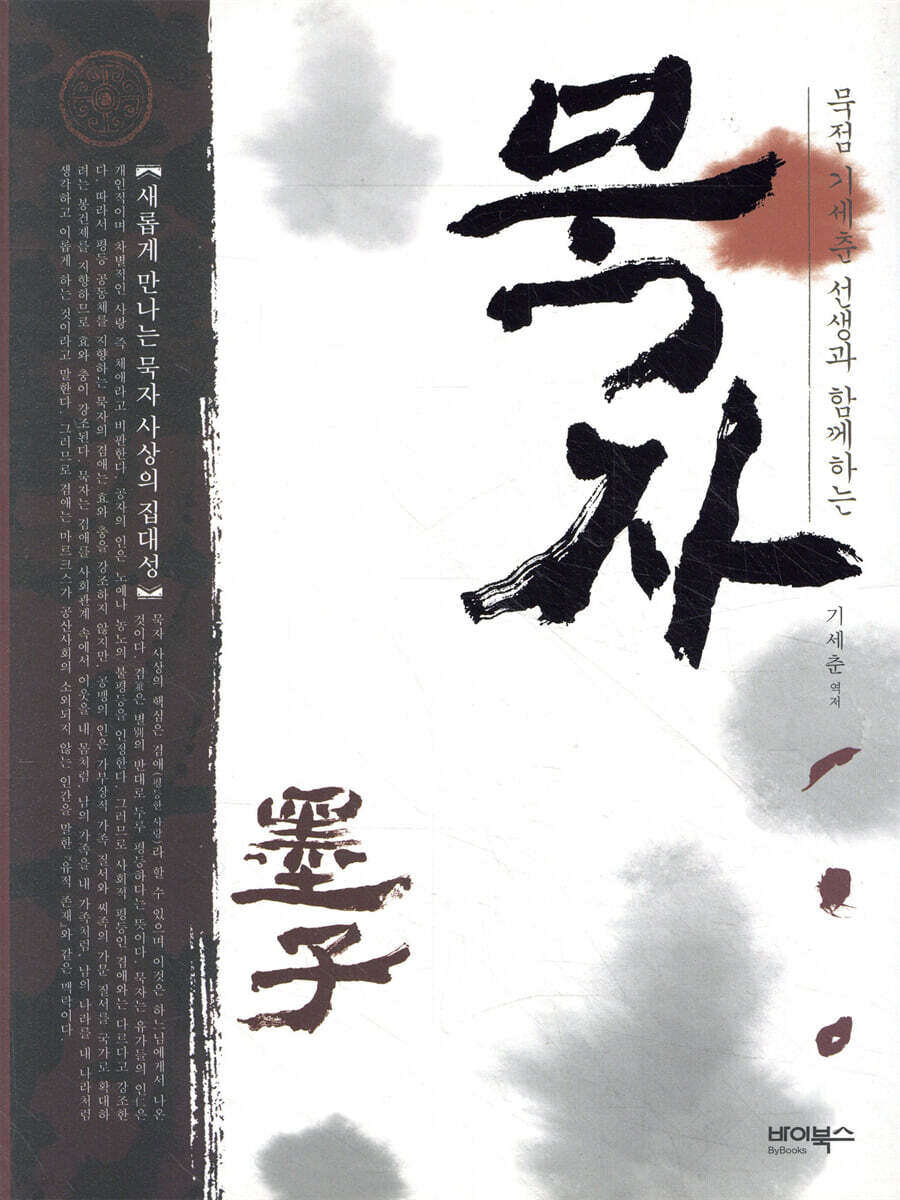 묵점 기세춘 선생과 함께하는
묵자
기세춘 역저
墨子
【《새롭게 만나는 묵자 사상의 집대성》】
묵자 사상의 핵심은 겸애(평등한 사랑)라 할 수 있으며 이것은 하느님에게서 나온
것이다. 겸兼은 별別의 반대로 두루 평등하다는 뜻이다. 묵자는 유가들의 인仁은
개인적이며 차별적인 사랑 즉 체애라고 비판한다. 공자의 인은 노예나 농노의 불평등을 인정한다. 그러므로 사회적 평등인 겸애와는 다르다고 강조한
다. 따라서 평등 공동체를 지향하는 묵자의 겸애는 효와 충을 강조하지 않지만, 공맹의 인은 가부장적 가족 질서와 씨족의 가문 질서를 국가로 확대하
려는 봉건제를 지향하므로 효와 충이 강조된다. 묵자는 겸애를 사회관계 속에서 이웃을 내 몸처럼, 남의 가족을 내 가족처럼, 남의 나라를 내 나라처럼
생각하고 이롭게 하는 것이라고 말한다. 그러므로 겸애는 마르크스가 공산사회의 소외되지 않는 인간을 말한 『유적 존재』와 같은 맥락이다.
바이북스
ByBooks